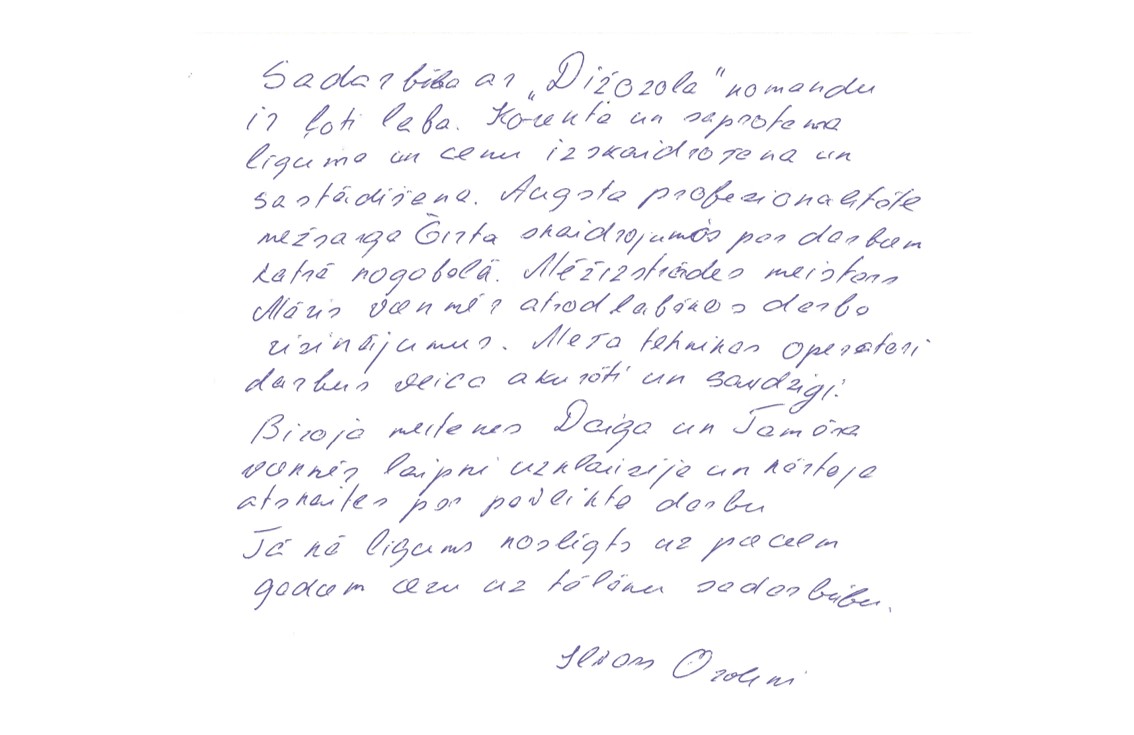 Sadarbība ar "Dižozola" komandu
ir ļoti laba. Korekta un saprotama
līguma un cenu izskaidrošana un
sastādīšana. Augsta profesionalitāte
mežsarga Ģirta skaidrojumos par darbiem
katrā nogabalā. Mežizstrādes meistars
Māris vienmēr atrod labākos darba
risinājumus. Meža tehnikas operatori
darbus veica akurāti un saudzīgi.
Biroja meitenes Daiga un Tamāra
vienmēr laipni uzklausīja un kārtoja
atskaites par paveikto darbu
Tā kā līgums noslēgts uz pieciem
gadiem ceru uz tālāku sadarbību.
Ozoliņi